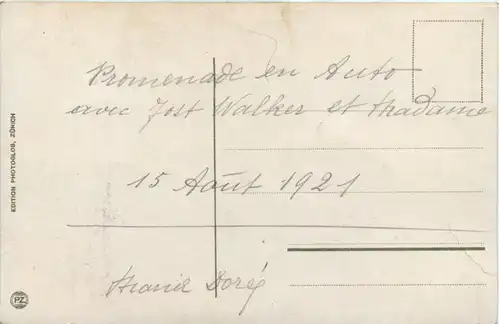 Promenade en Auto
avec Jost Walker et Madame
15 Août 1921
Doré
EDITION PHOTOGLOB, ZÜRICH
PZ